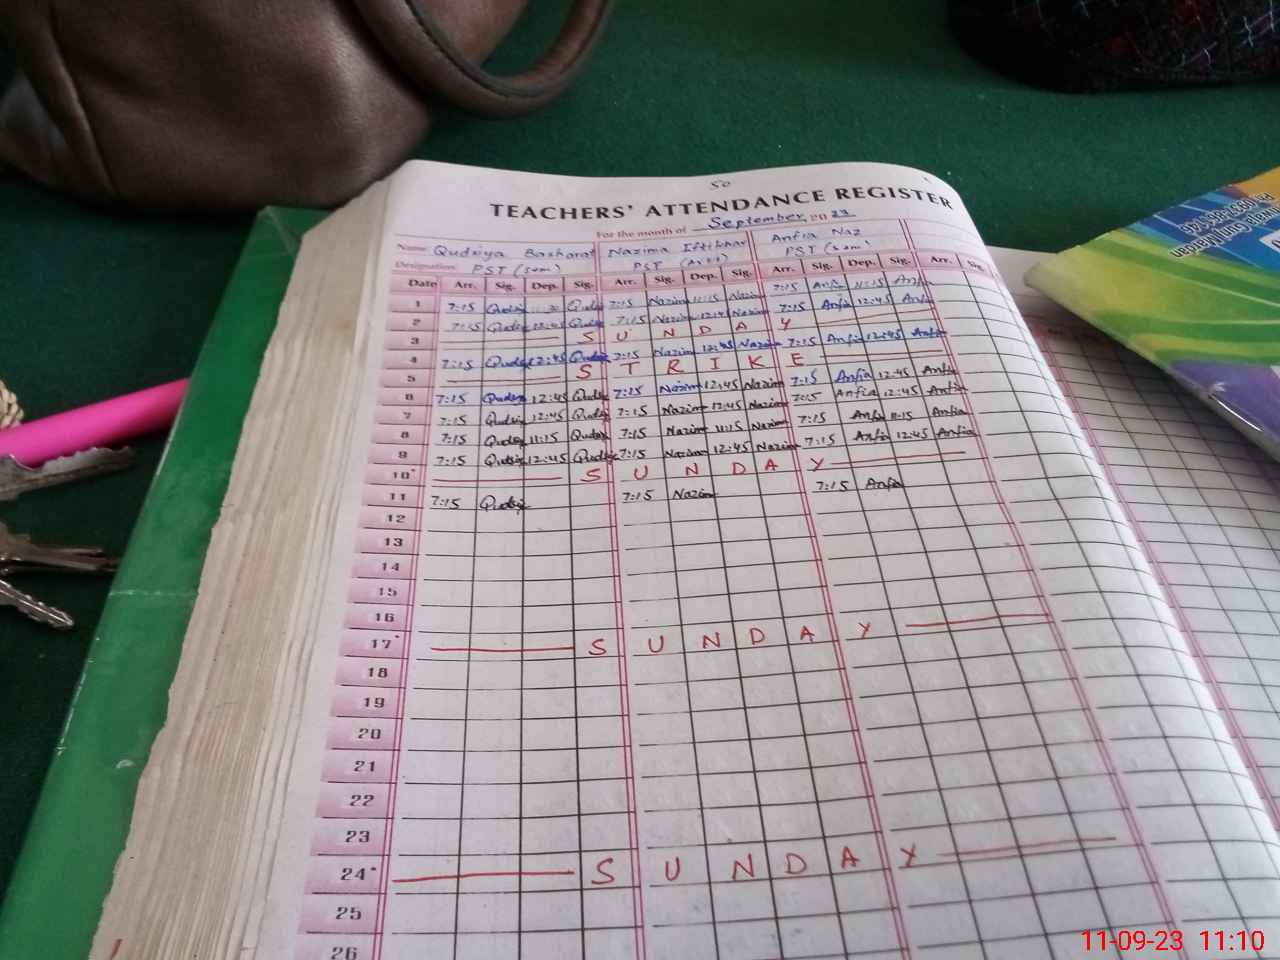 50
TEACHERS' ATTENDANCE REGISTER
For the month of September, 20 23
Name Qudsiya Basharat Nazima Iftikhar Anfia Naz
Designation PST (sum) PST PST (sum)
Date Arr. Sig. Dep. Sig. Arr. Sig. Dep. Sig. Arr. Sig. Dep. Sig. Arr. Sig.
1 7:15 Qudsi Qudsi 7:15 Nazim 11:15 Nazim 7:15 Anfia 11:15 Anfia
2 7:15 Qudsi 12:45 Qudsi 7:15 Nazim 12:45 Nazim 7:15 Anfia 12:45 Anfia
3 S U N D A Y
4 7:15 Qudsi 12:45 Qudsi 7:15 Nazim 12:45 Nazim 7:15 Anfia 12:45 Anfia
5 S T R I K E
6 7:15 Qudsi 12:45 Qudsi 7:15 Nazim 12:45 Nazim 7:15 Anfia 12:45 Anfia
7 7:15 Qudsi 12:45 Qudsi 7:15 Nazim 12:45 Nazim 7:15 Anfia 12:45 Anfia
8 7:15 Qudsi 11:15 Qudsi 7:15 Nazim 11:15 Nazim 7:15 Anfia 11:15 Anfia
9 7:15 Qudsi 12:45 Qudsi 7:15 Nazim 12:45 Nazim 7:15 Anfia 12:45 Anfia
10 S U N D A Y
11 7:15 Qudsi 7:15 Nazim 7:15 Anfia
12
13
14
15
16
17 S U N D A Y
18
19
20
21
22
23
24 S U N D A Y
25
26
11-09-23 11:10